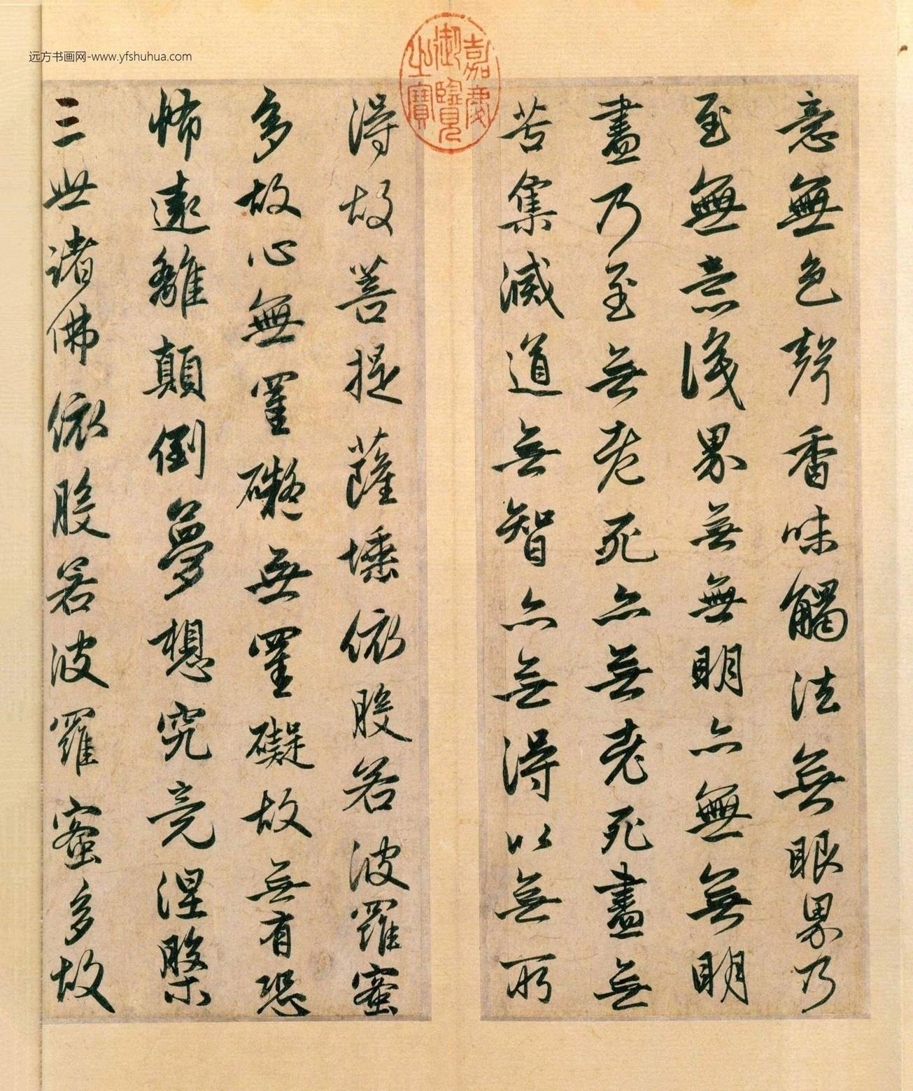 远方书画网-www.yfshuhua.com
嘉慶御覽之寶
意無色聲香味觸法無眼界乃
至無意識界無無明亦無無明
盡乃至無老死亦無老死盡無
苦集滅道無智亦無得以無所
得故菩提薩埵依般若波羅蜜
多故心無罣礙無罣礙故無有恐
怖遠離顛倒夢想究竟涅槃
三世諸佛依般若波羅蜜多故